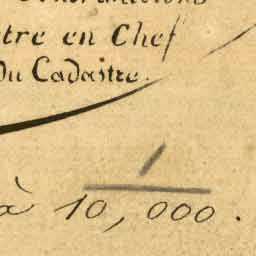 tre en Chef
Du Cadastre.
1
à 10,000.